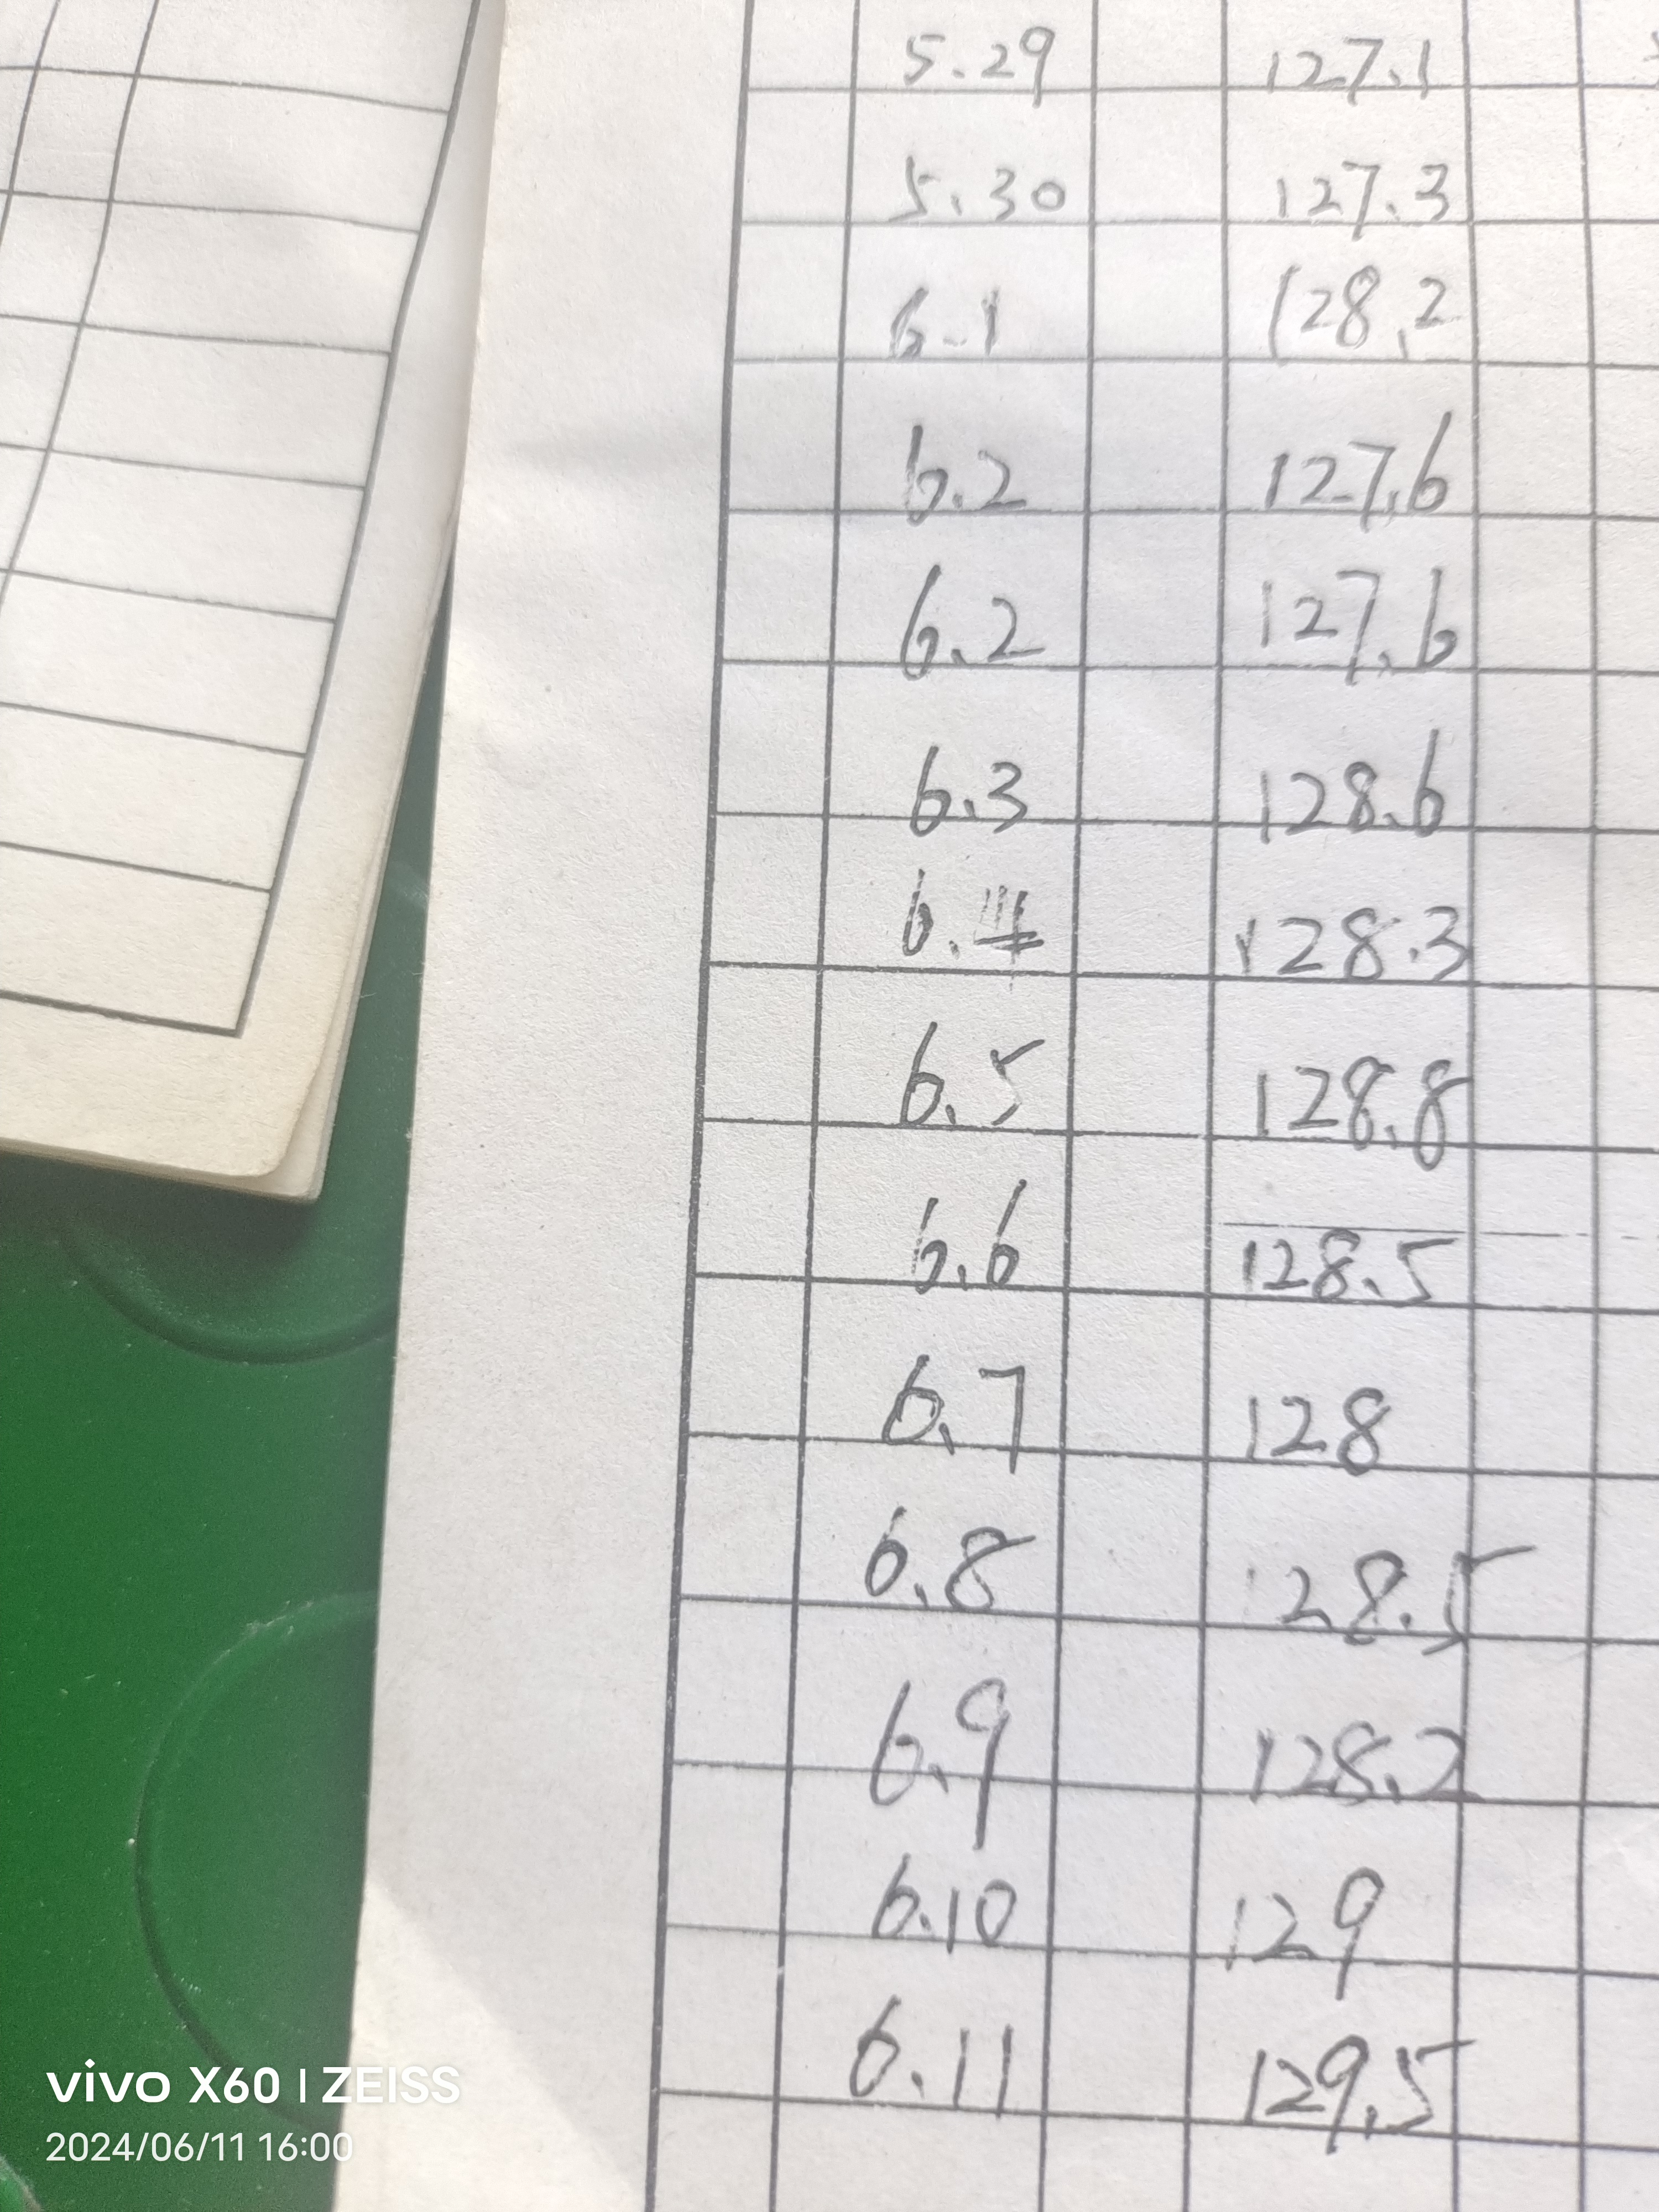 5.29 127.1
5.30 127.3
6.1 128.2
6.2 127.6
6.2 127.6
6.3 128.6
6.4 128.3
6.5 128.8
6.6 128.5
6.7 128
6.8 128.5
6.9 128.2
6.10 129
6.11 129.5
vivo X60 | ZEISS
2024/06/11 16:00